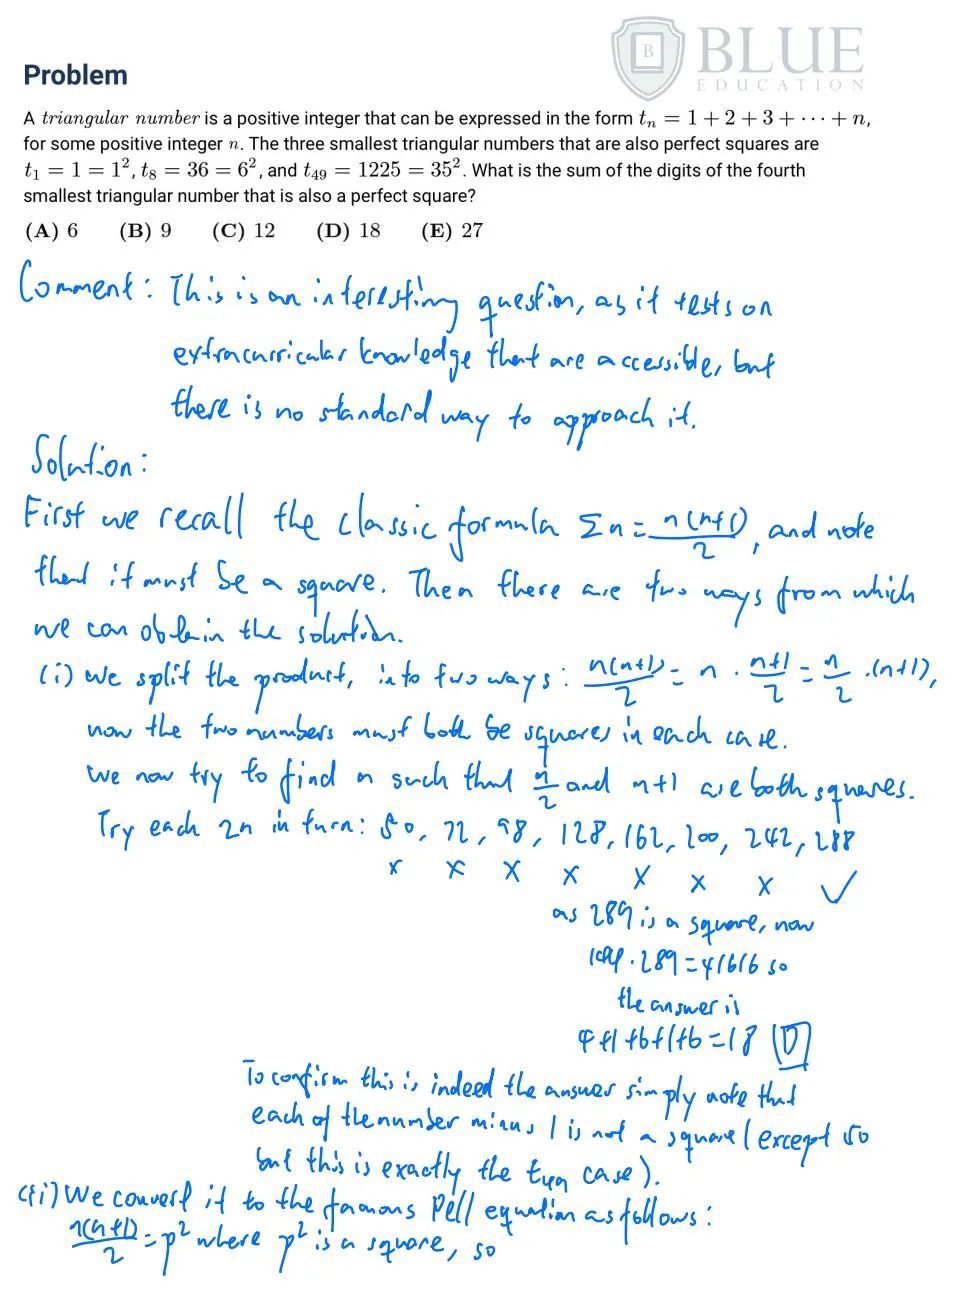 B BLUE
EDUCATION
Problem
A triangular number is a positive integer that can be expressed in the form tₙ = 1 + 2 + 3 + ··· + n,
for some positive integer n. The three smallest triangular numbers that are also perfect squares are
t₁ = 1 = 1², t₈ = 36 = 6², and t₄₉ = 1225 = 35². What is the sum of the digits of the fourth
smallest triangular number that is also a perfect square?
(A) 6 (B) 9 (C) 12 (D) 18 (E) 27
Comment: This is an interesting question, as it tests on
extracurricular knowledge that are accessible, but
there is no standard way to approach it.
Solution:
First we recall the classic formula Σn = n(n+1)/2, and note
that it must be a square. Then there are two ways from which
we can obtain the solution.
(i) We split the product, into two ways: n(n+1)/2 = n · (n+1)/2 = n/2 · (n+1),
now the two numbers must both be squares in each case.
We now try to find n such that n/2 and n+1 are both squares.
Try each 2n in turn: 50, 72, 98, 128, 162, 200, 242, 288
x x x x x x x ✓
as 289 is a square, now
144 · 289 = 41616 so
the answer is
4+1+6+1+6 = 18 (D)
To confirm this is indeed the answer simply note that
each of the number minus 1 is not a square (except 50
but this is exactly the t₄₉ case).
(ii) We convert it to the famous Pell equation as follows:
n(n+1)/2 = p² where p² is a square, so